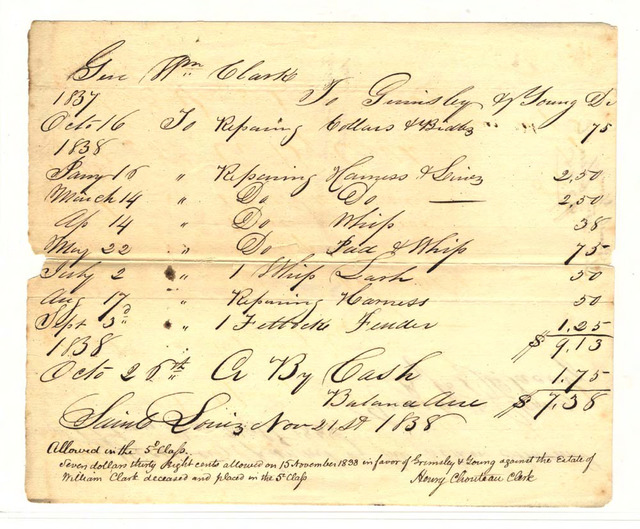 Gen Wm Clark
1837 To Grimsley & Young Dr
Octo 16 To Repairing Collars & Bridle 75
1838
Jany 16 " Repairing Harness & Lines 2,50
March 14 " Do Do — 2,50
Ap 14 " Do Whip 38
May 22 " Do Pad & Whip 75
July 2 " 1 Whip Lash 50
Aug 17 " Repairing Harness 50
Sept 3d " 1 Fettock Fender 1.25
1838 $ 9,13
Octo 26th Cr By Cash 1.75
Balance Due $ 7,38
Saint Louis Nov 21st 1838
Allowed in the 5th Class.
Seven dollars thirty Eight cents allowed on 15 November 1838 in favor of Grimsley & Young against the Estate of
William Clark deceased and placed in the 5th Class Henry Chouteau Clerk